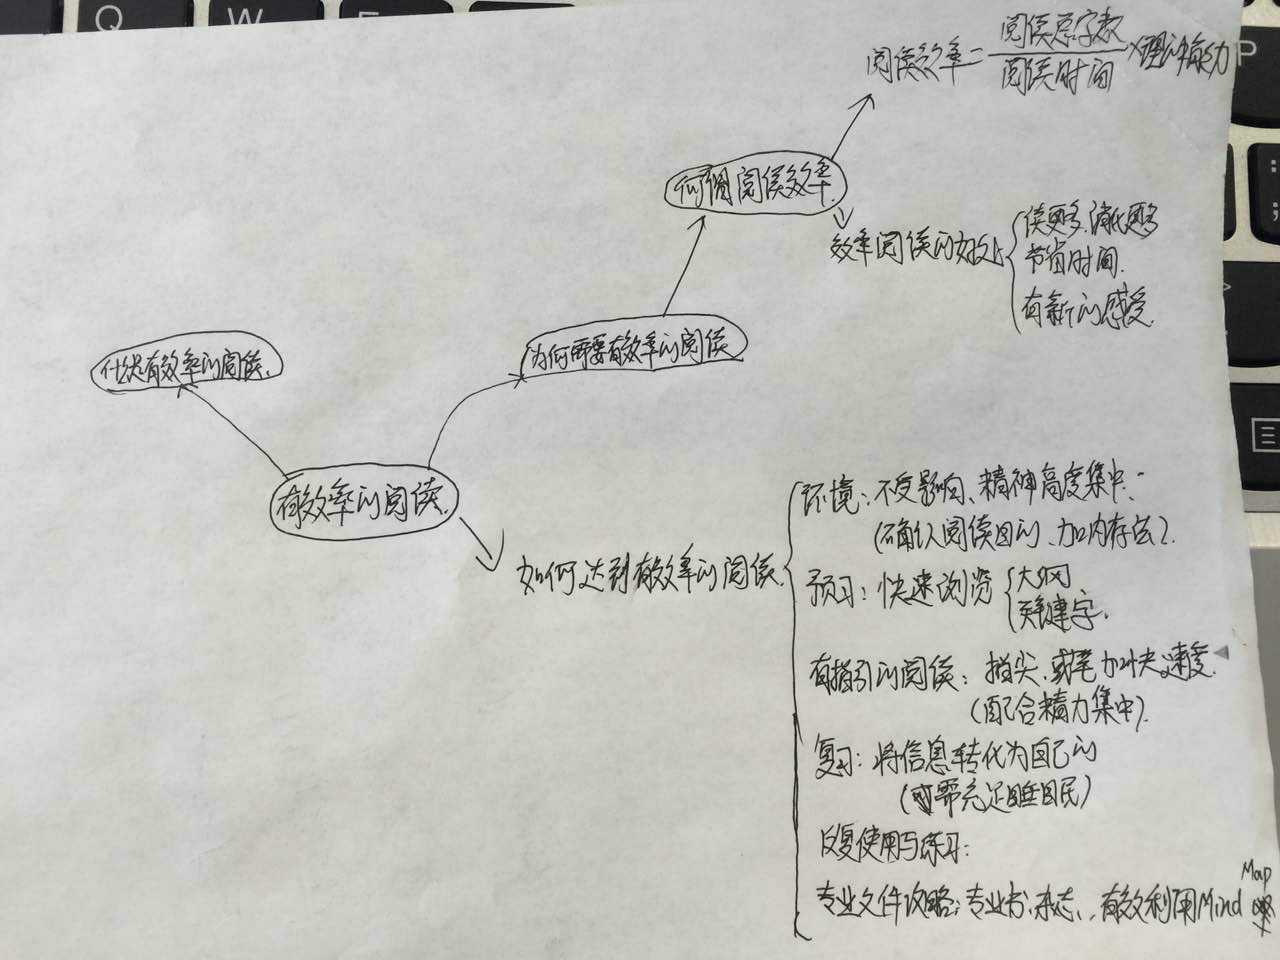 Q W E P
阅读效率=阅读总字数/阅读时间×理解能力
何谓阅读效率
效率阅读的好处
读更多、消化更多
节省时间.
有新的感受.
什么是有效率的阅读.
为何需要有效率的阅读
有效率的阅读.
如何达到有效率的阅读.
环境:不受影响、精神高度集中.
(确认阅读目的、加内存法).
预习:快速浏览
大纲
关键字.
有指引的阅读:指尖、或笔加快速度.
(配合精力集中).
复习:将信息转化为自己的
(需充足睡眠)
反复使用与练习:
专业文件攻略:专业书、杂志、有效利用Mind Map